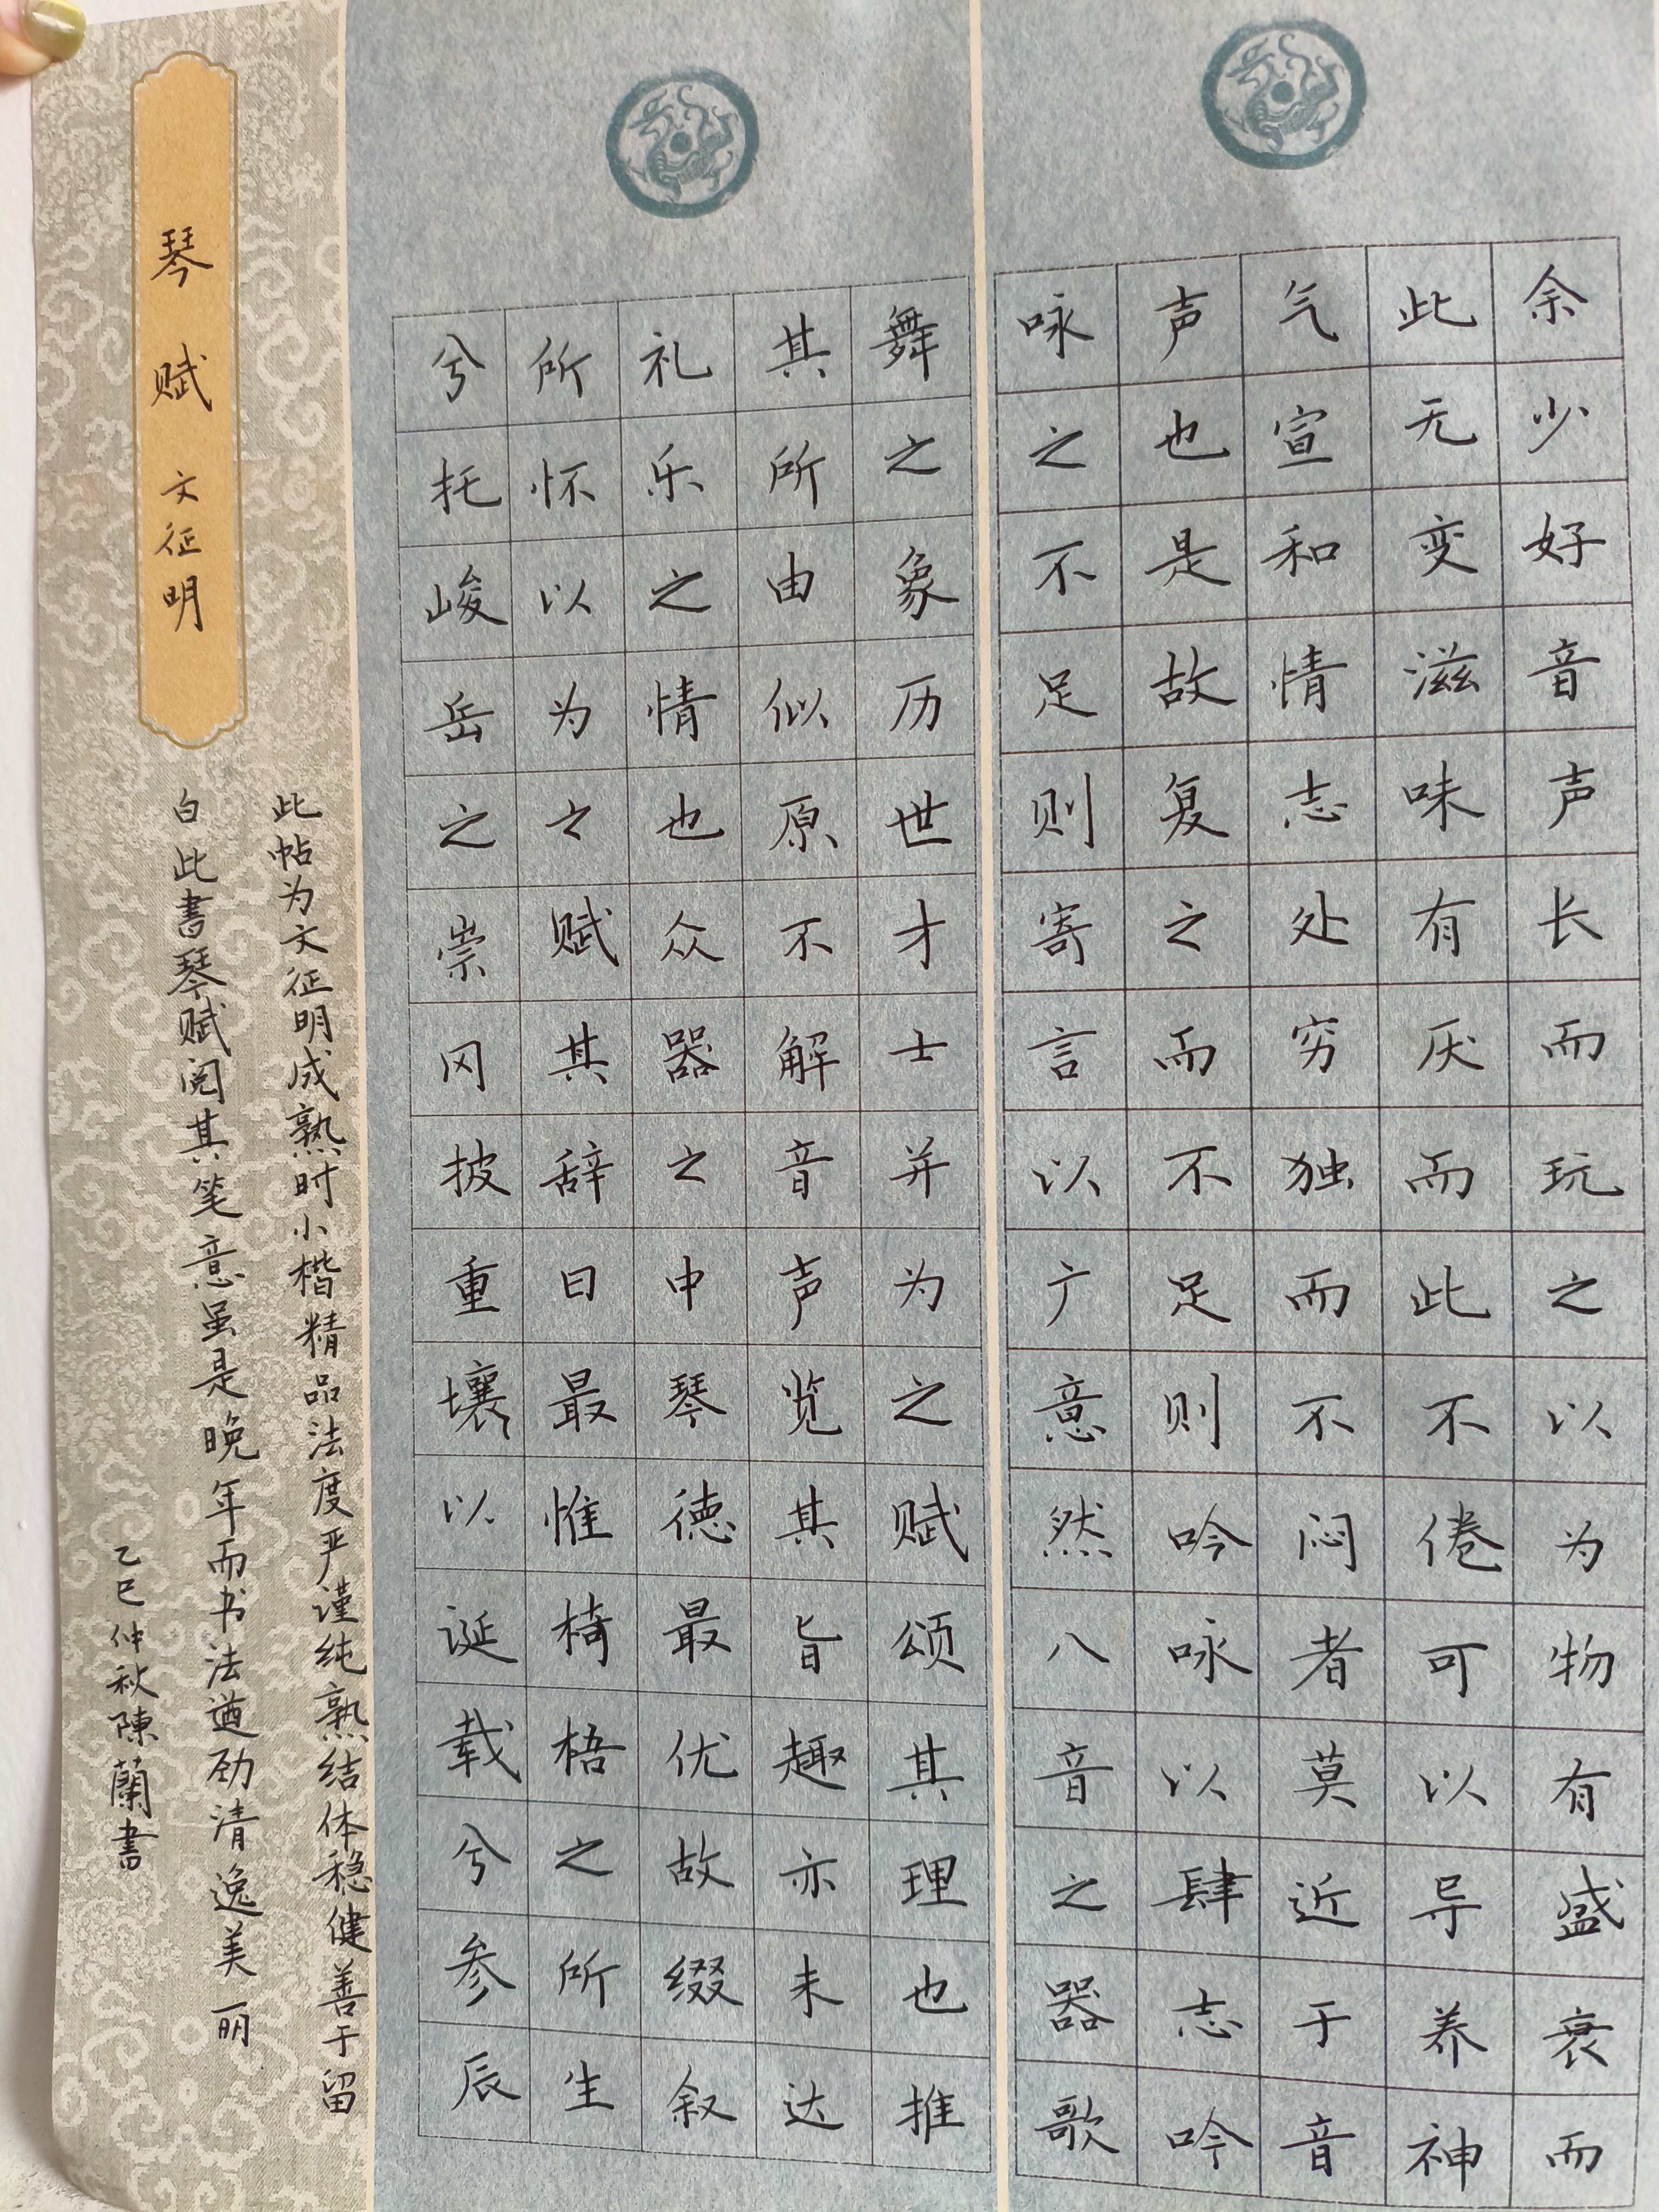 余少好音声长而玩之以为物有盛衰而
此无变滋味有厌而此不倦可以导养神
气宣和情志处穷独而不闷者莫近于音
声也是故复之而不足则吟咏以肆志吟
咏之不足则寄言以广意然八音之器歌
舞之象历世才士并为之赋颂其理也推
其所由似原不解音声览其旨趣亦未达
礼乐之情也众器之中琴德最优故缀叙
所怀以为之赋其辞曰最惟椅梧之所生
兮托峻岳之崇冈披重壤以诞载兮参辰
琴赋 文征明
此帖为文征明成熟时小楷精品法度严谨纯熟结体稳健善于留
白此書琴赋阅其笔意虽是晚年而书法遒劲清逸美丽
乙巳仲秋陳蘭書